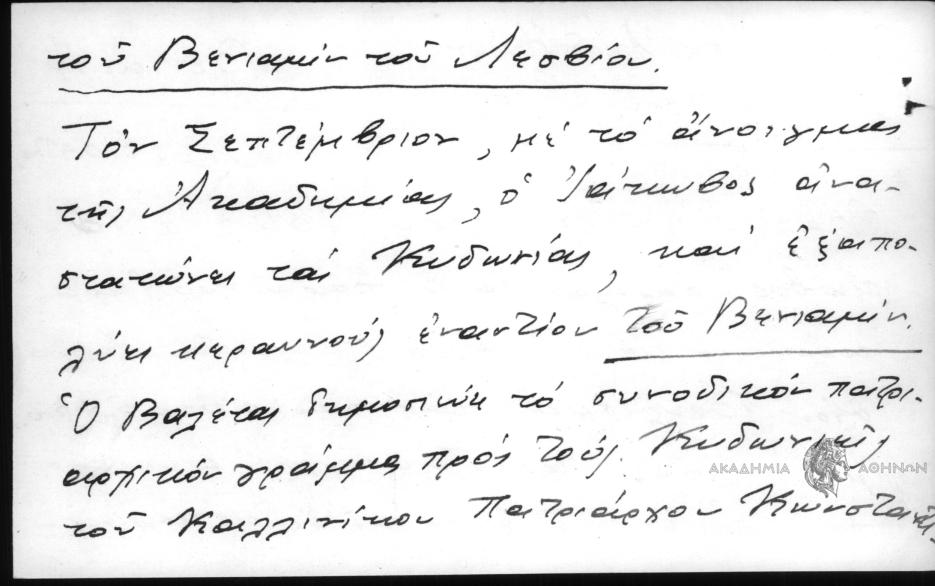 τοῦ Βενιαμὶν τοῦ Λεσβίου.
Τὸν Σεπτέμβριον, μὲ τὸ ἄνοιγμα
τῆς Ἀκαδημίας, ὁ Ἰάκωβος ἀνα-
στατώνει τὰς Κυδωνίας, καὶ ἐξαπο-
λύει κεραυνοὺς ἐναντίον τοῦ Βενιαμίν.
Ὁ Βαλέτας δημοσιεύει τὸ συνοδικὸν πατρι-
αρχικὸν γράμμα πρὸς τοὺς Κυδωνιεῖς
ΑΚΑΔΗΜΙΑ ΑΘΗΝΩΝ
τοῦ Καλλινίκου Πατριάρχου Κωνσταντι-